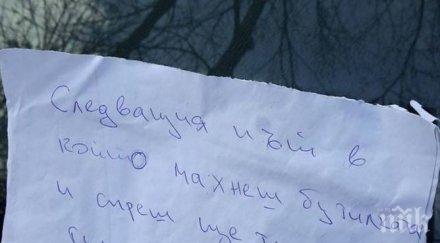 Следващия път в
който махнеш бутилката
и спреш ще
пик